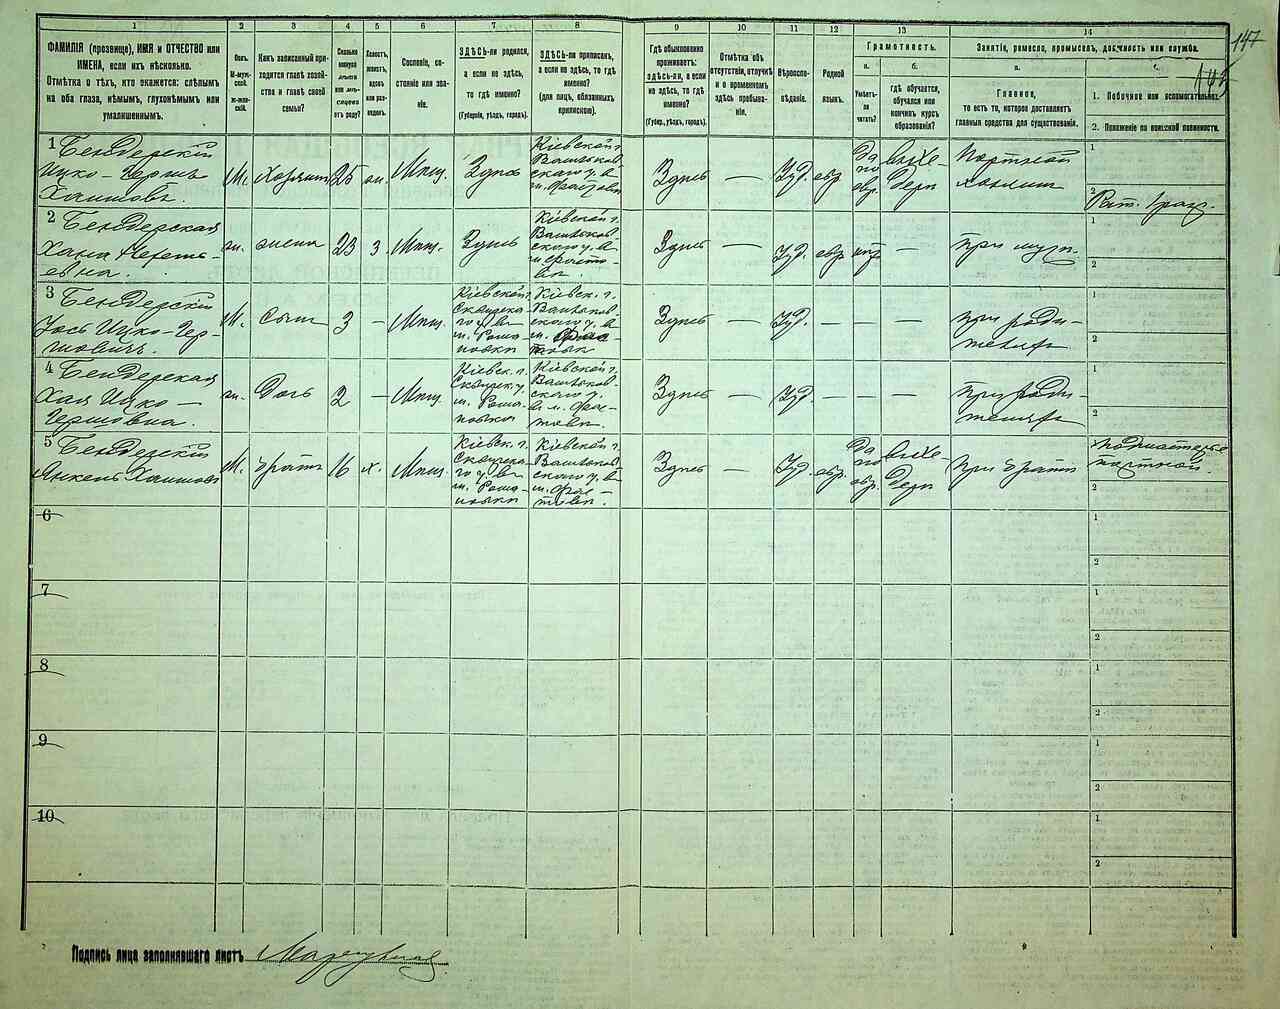 1 2 3 4 5 6 7 8 9 10 11 12 13 14
147
ФАМИЛІЯ (прозвище), ИМЯ и ОТЧЕСТВО или
ИМЕНА, если ихъ нѣсколько.
Отмѣтка о тѣхъ, кто окажется: слѣпымъ
на оба глаза, нѣмымъ, глухонѣмымъ или
умалишеннымъ.
Полъ.
М-муж-
ской.
ж-жен-
скій.
Какъ записанный при-
ходится главѣ хозяй-
ства и главѣ своей
семьи?
Сколько
минуло
лѣтъ
или мѣ-
сяцевъ
отъ роду?
Холостъ,
женатъ,
вдовъ
или раз-
веденъ.
Сословіе, со-
стояніе или зва-
ніе.
ЗДѢСЬ-ли родился,
а если не здѣсь,
то гдѣ именно?
(Губернія, уѣздъ, городъ).
ЗДѢСЬ-ли приписанъ,
а если не здѣсь, то гдѣ
именно?
(для лицъ, обязанныхъ
припискою).
Гдѣ обыкновенно
проживаетъ:
здѣсь-ли, а если
не здѣсь, то гдѣ
именно?
(Губер., уѣздъ, городъ).
Отмѣтка объ
отсутствіи, отлучкѣ
и о временномъ
здѣсь пребыва-
ніи.
Вѣроспо-
вѣданіе.
Родной
языкъ.
Грамотность.
а.
Умѣетъ-
ли
читать?
б.
гдѣ обучается,
обучался или
кончилъ курсъ
образованія?
Занятіе, ремесло, промыселъ, должность или служба.
а.
Главное,
то есть то, которое доставляетъ
главныя средства для существованія.
1. Побочное или вспомогательное.
2. Положеніе по воинской повинности.
1 Бендерскій
Ицко-Гершъ
Хаимовъ.
м. хозяинъ 25 ж. Мѣщ. Здѣсь
Кіевской г.
Васильков-
скаго у.
Здѣсь — Іуд. евр.
да
по
евр.
въ хе-
дерѣ
Портной
хозяинъ
1
2
Рат. 1 разр.
2 Бендерская
Хана
евна.
ж. жена 23 з. Мѣщ. Здѣсь
Кіевской г.
Васильков-
скаго у.
Здѣсь — Іуд. евр. нѣтъ —
при мужѣ.
1
2
3 Бендерскій
Іось Ицко-Гер-
шовичъ.
м. сынъ 3 — Мѣщ.
Кіевской г.
Сквирска-
го у.
Кіевск. г.
Васильков-
скаго у.
Здѣсь — Іуд. — — —
при роди-
теляхъ
1
2
4 Бендерская
Хая Ицко-
Гершовна.
ж. дочь 2 — Мѣщ.
Кіевск. г.
Сквирск. у.
Кіевской г.
Васильков-
скаго у.
Здѣсь — Іуд. — — —
при роди-
теляхъ
1
2
5 Бендерскій
Янкель Хаимовъ
м. братъ 16 х. Мѣщ.
Кіевск. г.
Сквирска-
го у.
Кіевской г.
Васильков-
скаго у.
Здѣсь — Іуд. евр.
да
по
евр.
въ хе-
дерѣ
при братѣ
1
подмастерье
портной.
2
6
1
2
7
1
2
8
1
2
9
1
2
10
1
2
Подпись лица заполнявшаго листъ